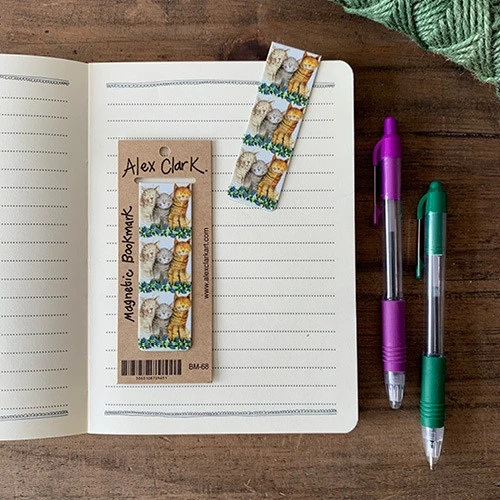 Alex Clark.
Magnetic Bookmark
www.alexclarkart.com
BM-68